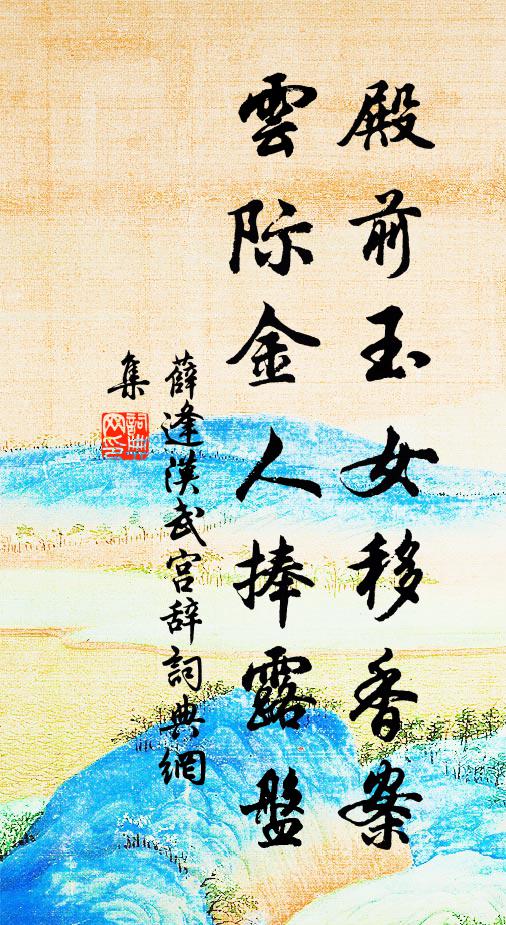 殿前玉女移香案
雲际金人捧露盤
薛逢漢武宮辞詞典網
集
詞典
网印